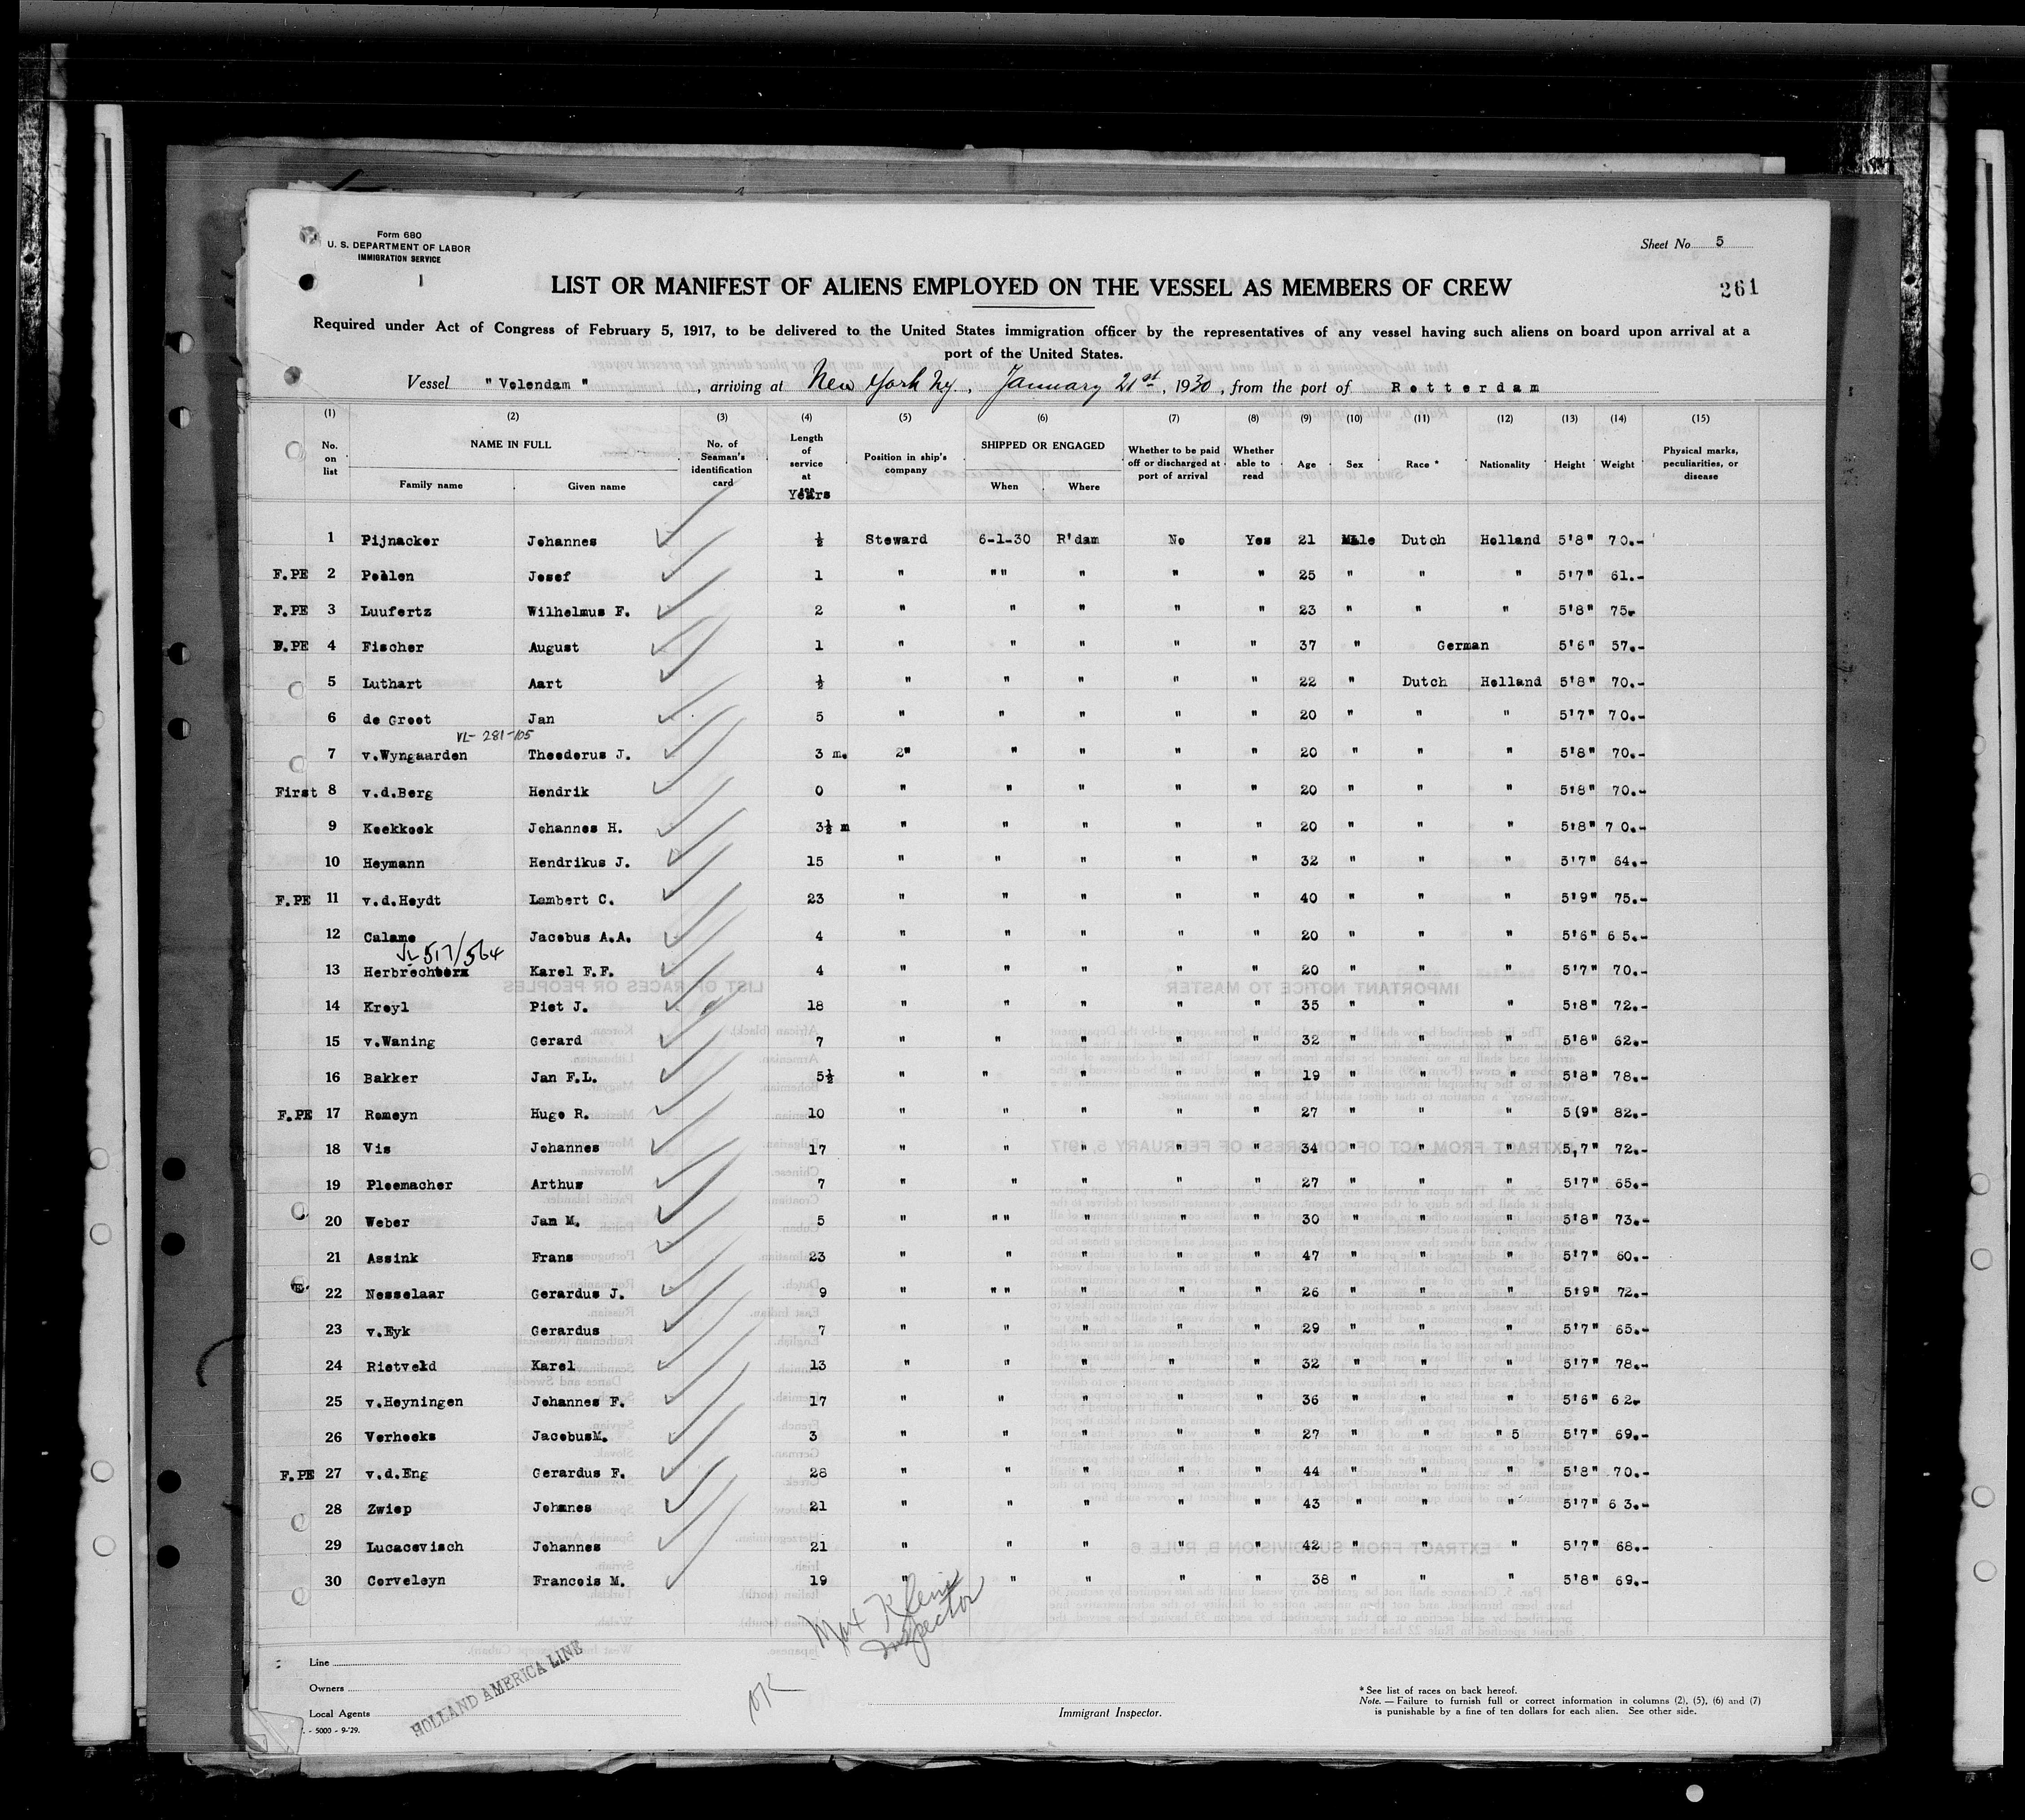 Form 680
U. S. DEPARTMENT OF LABOR
IMMIGRATION SERVICE
Sheet No 5
LIST OR MANIFEST OF ALIENS EMPLOYED ON THE VESSEL AS MEMBERS OF CREW
261
Required under Act of Congress of February 5, 1917, to be delivered to the United States immigration officer by the representatives of any vessel having such aliens on board upon arrival at a
port of the United States.
Vessel "Volendam", arriving at New York Ny, January 21st, 1930, from the port of Rotterdam
(1) (2) (3) (4) (5) (6) (7) (8) (9) (10) (11) (12) (13) (14) (15)
No. on list NAME IN FULL Family name Given name No. of Seaman's identification card Length of service at Years Position in ship's company SHIPPED OR ENGAGED When Where Whether to be paid off or discharged at port of arrival Whether able to read Age Sex Race * Nationality Height Weight Physical marks, peculiarities, or disease
1 Pijnacker Johannes ½ Steward 6-1-30 R'dam No Yes 21 Male Dutch Holland 5'8" 70.-
F.PE 2 Pellen Josef 1 " "" " " " 25 " " " 5'7" 61.-
F.PE 3 Luufertz Wilhelmus F. 2 " " " " " 23 " " " 5'8" 75-
F.PE 4 Fischer August 1 " " " " " 37 " German 5'6" 57.-
5 Luthart Aart ½ " " " " " 22 " Dutch Holland 5'8" 70.-
6 de Groot Jan 5 " " " " " 20 " " " 5'7" 70.-
VL- 281-105
7 v.Wyngaarden Theoderus J. 3 m. 2" " " " " 20 " " " 5'8" 70.-
First 8 v.d.Berg Hendrik 0 " " " " " 20 " " " 5'8" 70.-
9 Koekkoek Johannes H. 3½ m " " " " " 20 " " " 5'8" 70.-
10 Heymann Hendrikus J. 15 " " " " " 32 " " " 5'7" 64.-
F.PE 11 v.d.Heydt Lambert C. 23 " " " " " 40 " " " 5'9" 75.-
12 Calame Jacobus A.A. 4 " " " " " 20 " " " 5'6" 65.-
VL 517/564
13 Herbrechterx Karel F.F. 4 " " " " " 20 " " " 5'7" 70.-
14 Kreyl Piet J. 18 " " " " " 35 " " " 5'8" 72.-
15 v.Waning Gerard 7 " " " " " 32 " " " 5'8" 62.-
16 Bakker Jan F.L. 5½ " " " " " 19 " " " 5'8" 78.-
F.PE 17 Romeyn Hugo R. 10 " " " " " 27 " " " 5(9" 82.-
18 Vis Johannes 17 " " " " " 34 " " " 5,7" 72.-
19 Ploemacher Arthur 7 " " " " " 27 " " " 5'7" 65.-
20 Weber Jan M. 5 " "" " " " 30 " " " 5'8" 73.-
21 Assink Frans 23 " " " " " 47 " " " 5'7" 60.-
22 Nesselaar Gerardus J. 9 " "" " " " 26 " " " 5'9" 72.-
23 v.Eyk Gerardus 7 " " " " " 29 " " " 5'7" 65.-
24 Rietveld Karel 13 " " " " " 32 " " " 5'7" 78.-
25 v.Heyningen Johannes F. 17 " " " " " 36 " " " 5'6" 62.
26 Verhoeks JacobusM. 3 " " " " " 27 " " " 5 5'7" 69.-
F.PE 27 v.d.Eng Gerardus F. 28 " " " " " 44 " " " 5'8" 70.-
28 Zwiep Johanes 21 " " " " " 43 " " " 5'7" 63.-
29 Lucacovisch Johannes 21 " " " " " 42 " " " 5'7" 68.-
30 Corveleyn Francois M. 19 " " " " " 38 " " " 5'8" 69.-
Max Klein
Inspector
OK
Line
Owners
Local Agents
HOLLAND AMERICA LINE
- 5000 - 9-'29.
Immigrant Inspector.
* See list of races on back hereof.
Note. — Failure to furnish full or correct information in columns (2), (5), (6) and (7)
is punishable by a fine of ten dollars for each alien. See other side.